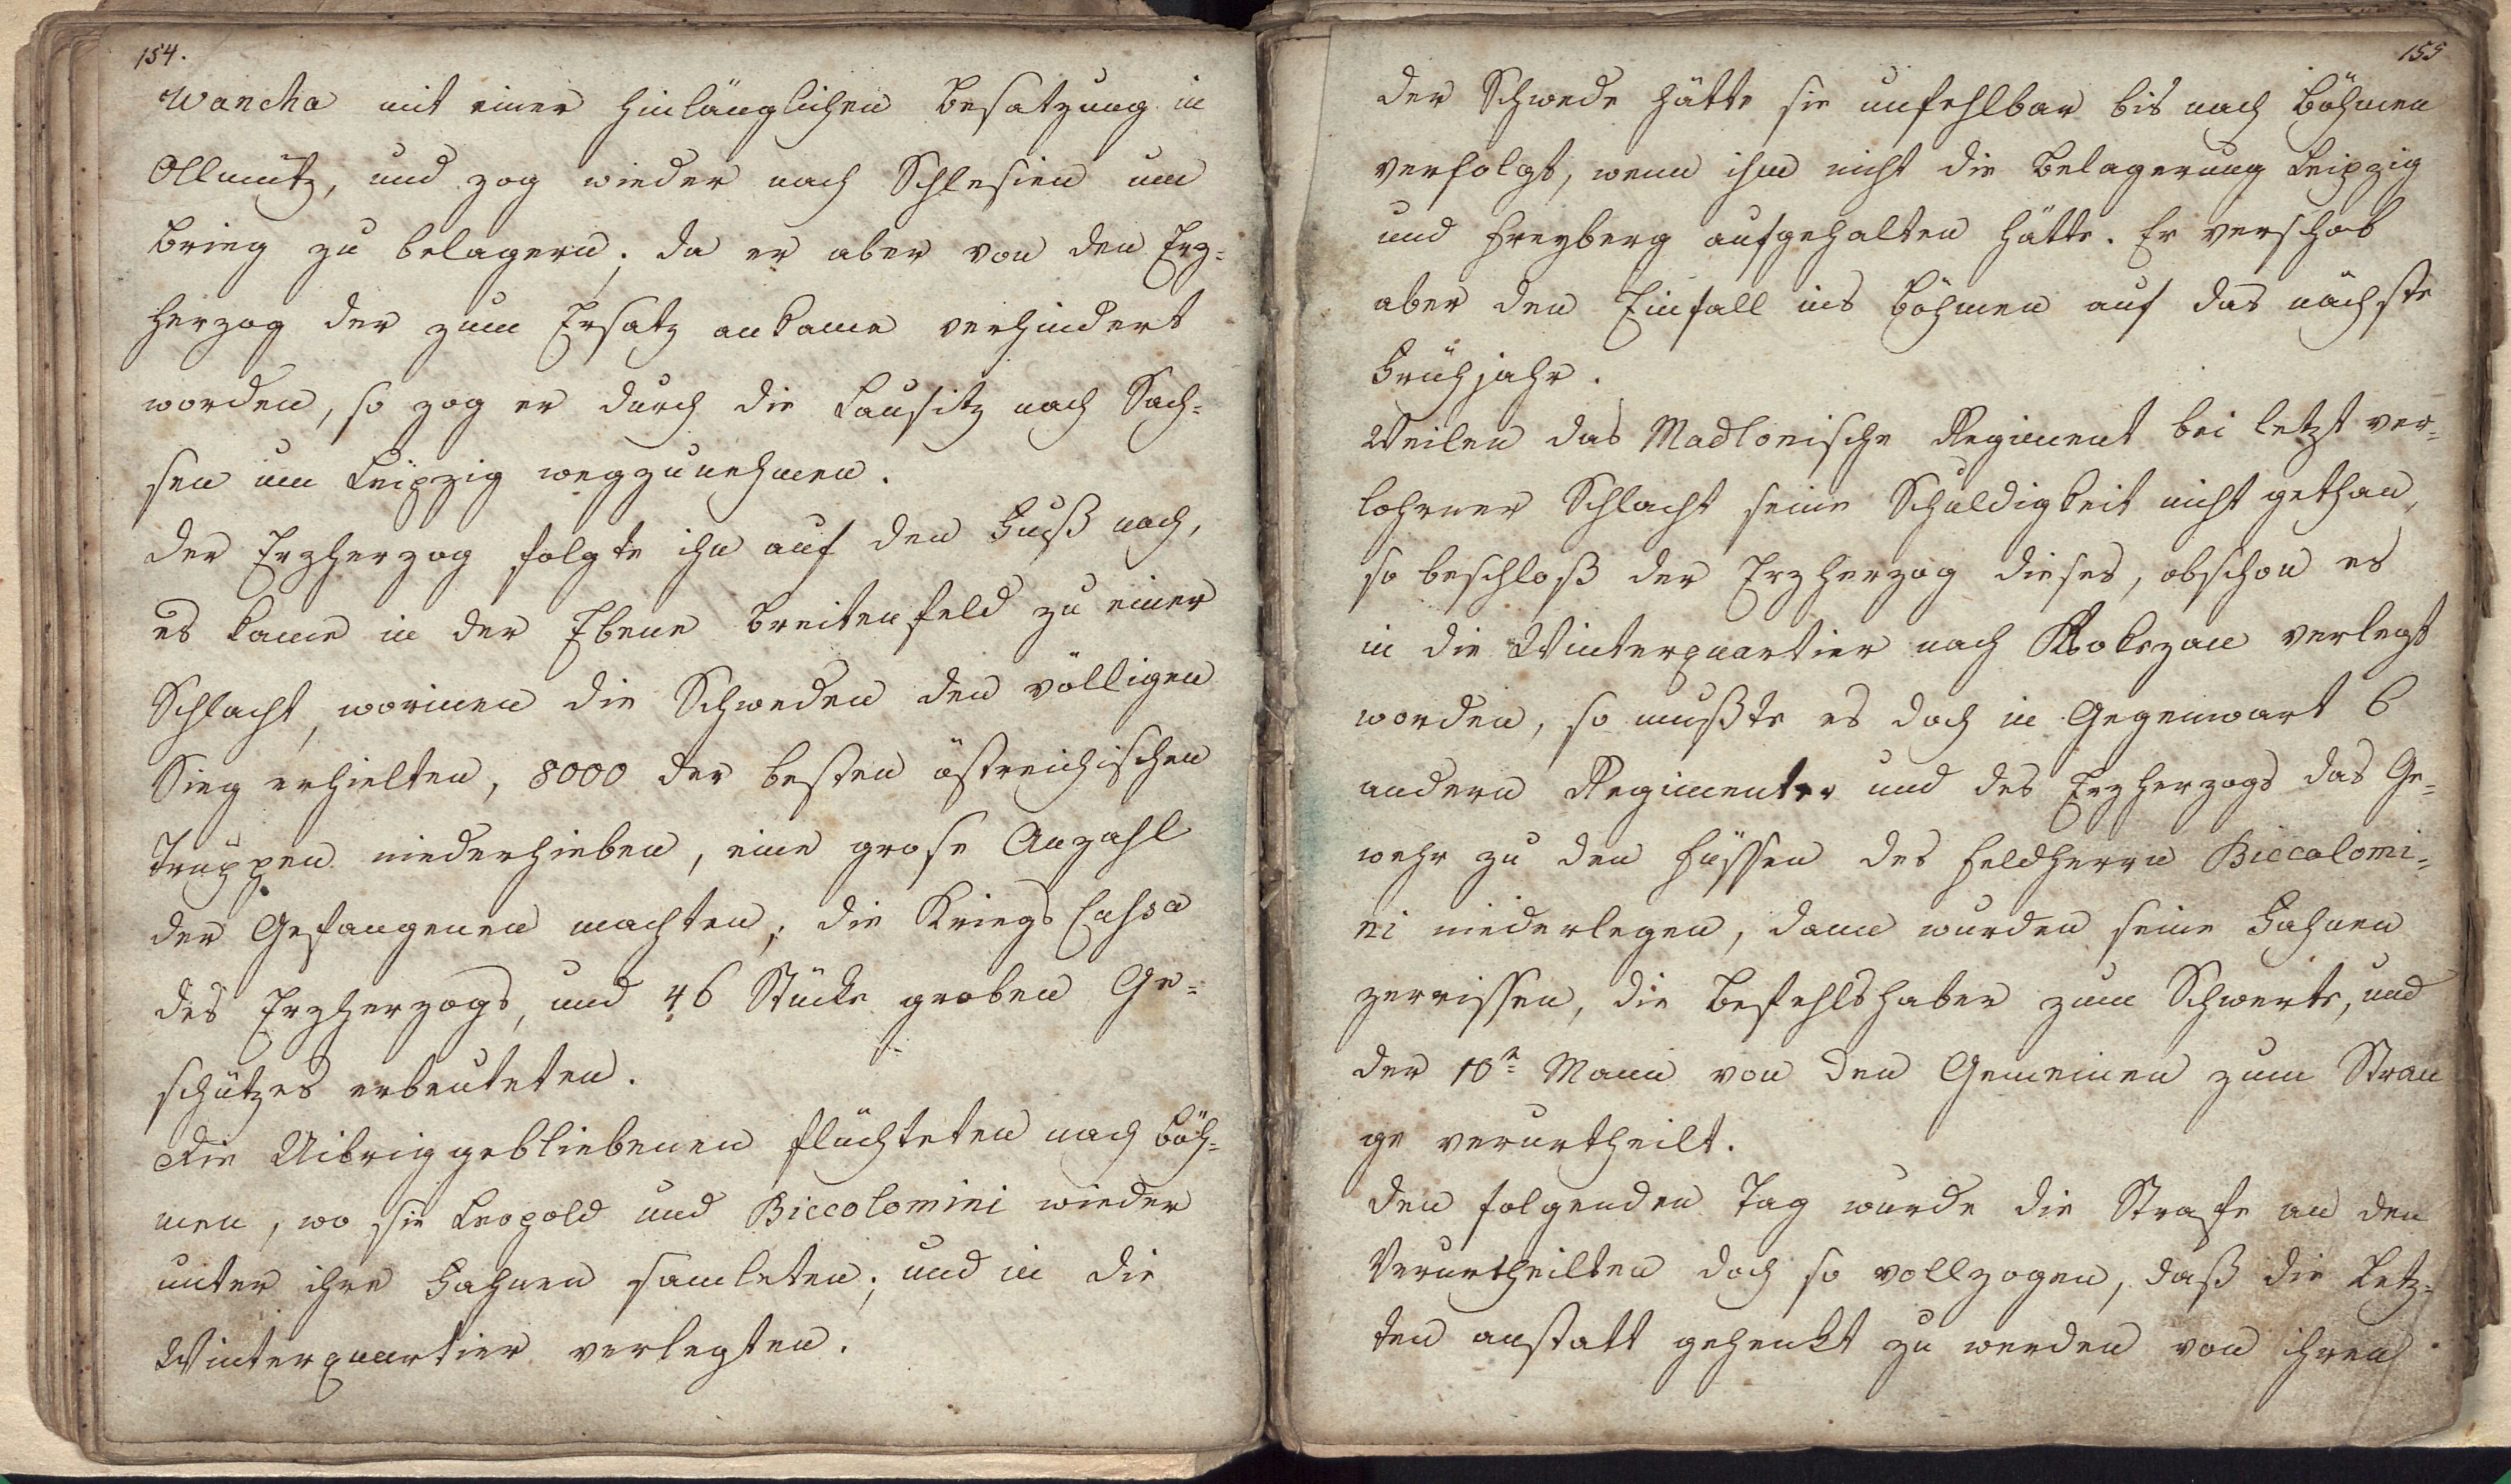 154.
Wancha mit einer hinlänglichen Besatzung in
Ollmütz, und zog wieder nach Schlesien um
Brieg zu belagern; da er aber von den Erz-
herzog der zum Ersatz ankame verhindert
worden, so zog er durch die Lausitz nach Sach-
sen um Leipzig wegzunehmen.
Der Erzherzog folgte ihn auf den Fuß nach,
es kame in der Ebene Breitenfeld zu einer
Schlacht, worinnen die Schweden den völligen
Sieg erhielten, 8000 der besten östreichischen
Truppen niederhieben, eine grose Anzahl
der Gefangenen machten; die Kriegs Cassa
des Erzherzogs, und 46 Stücke groben Ge-
schützes erbeuteten.
Die Uibriggebliebenen flüchteten nach Böh-
men, wo sie Leopold und Biccolomini wieder
unter ihre Fahnen samleten; und in die
Winterquartier verlegten.
155
Der Schwede hätte sie unfehlbar bis nach Böhmen
verfolgt, wenn ihm nicht die Belagerung Leipzig
und Freyberg aufgehalten hätte. Er verschob
aber den Einfall ins Böhmen auf das nächste
Frühjahr.
Weilen das Madlonische Regiment bei letzt ver-
lohrner Schlacht seine Schuldigkeit nicht gethan,
so beschloß der Erzherzog dieses, obschon es
in die Winterquartier nach Rokezan verlegt
worden, so mußte es doch in Gegenwart 6
andern Regimenter und des Erzherzogs das Ge-
wehr zu den Füssen des Feldherrn Biccolomi-
ni niederlegen, dann wurden seine Fahnen
zerrissen, die Befehlshaber zum Schwerte, und
der 10te Mann von den Gemeinen zum Stran
ge verurtheilt.
Den folgenden Tag wurde die Strafe an den
Verurtheilten doch so vollzogen, daß die Letz-
ten anstatt gehenkt zu werden von ihren